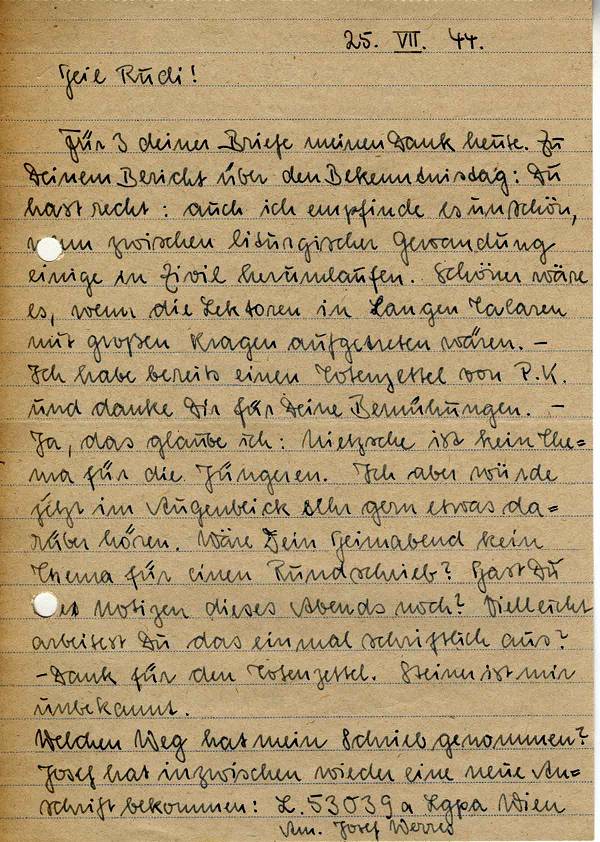 25. VII. 44.
Heil Rudi!
Für 3 deiner Briefe meinen Dank heute. Zu
Deinem Bericht über den Bekenntnistag: Du
hast recht: auch ich empfinde es unschön,
wenn zwischen liturgischer Gewandung
einige in Zivil herumlaufen. Schöner wäre
es, wenn die Lektoren in Langen Talaren
mit großen Kragen aufgetreten wären. –
Ich habe bereits einen Totenzettel von P.K.
und danke Dir für Deine Bemühungen. –
Ja, das glaube ich: Nietzsche ist kein The=
ma für die Jüngeren. Ich aber würde
jetzt im Augenblick sehr gern etwas da=
rüber hören. Wäre Dein Heimabend kein
Thema für einen Rundschrieb? Hast Du
Notizen dieses Abends noch? Vielleicht
arbeitest Du das einmal schriftlich aus?
– Dank für den Totenzettel. Steiner ist mir
unbekannt.
Welchen Weg hat mein Schrieb genommen?
Josef hat inzwischen wieder eine neue An=
schrift bekommen: L. 53039 a Lgpa Wien
Josef